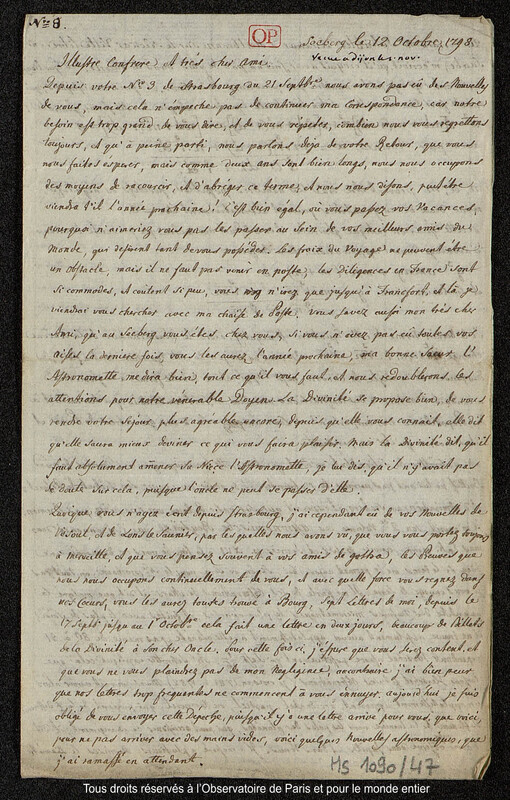 Nro 8.
OP
Seeberg le 12 Octobre 1798.
Illustre Confrere et tres cher Ami.
recue a dijon le 1. nov.
Depuis votre No. 3 de Strasbourg du 21 Septbr. nous avons pas eû de Nouvelles
de vous, mais cela n'empeche pas de continuer ma Correspondance, car notre
besoin est trop grand de vous dire, et de vous repéter, combien nous vous regrettons
toujours, et qu'à peine parti, nous parlons deja de votre Retour, que vous
nous faites esperer, mais comme deux ans sont bien longs, nous nous occupons
des moyens de racourcir, et d'abréger ce terme, et nous nous disons, peut être
viendra t'il l'année prochaine! C'est bien égal, où vous passez vos Vacances,
pourquoi n'aimeriez vous pas les passer au sein de vos meilleurs amis du
Monde, qui desirent tant de vous posséder. Les fraix du Voyage ne peuvent être
un obstacle, mais il ne faut pas venir en poste, les diligences en France sont
si commodes, et coutent si peu, vous n'irez que jusqu'à Francfort, et là je
viendrai vous chercher avec ma chaise de Poste. Vous savez aussi mon très cher
Ami, qu'au Seeberg vous étes chez vous, si vous n'avez pas eû toutes vos
aises la derniere fois, vous les aurez l'année prochaine, ma bonne Soeur l'
Astronomette, me dira bien, tout ce qu'il vous faut, et nous redoublerons les
attentions pour notre vénérable Doyen. La Divinité se propose bien, de vous
rendre votre Sejour plus agreable encore, depuis qu'elle vous connait, elle dit
qu'elle saura mieux deviner ce qui vous faira plaisir. Mais la Divinité dit, qu'il
faut absolument amener sa Niece l'Astronomette, je lui dis, qu'il n'y avait pas
de doute sur cela, puisque l'oncle ne peut se passer d'elle.
Quoique vous n'ayez écrit depuis Strasbourg, j'ai cependant eû de vos Nouvelles de
Vesoul, et de Lons le Saunier, par les quelles nous avons vû, que vous vous portez toujours
à merveille, et que vous pensez souvent à vos amis de Gotha, les Preuves que
nous nous occupons continuellement de vous, et avec quelle force vous regnez dans
nos Coeurs, vous les aurez toutes trouvé à Bourg, Sept Lettres de moi, depuis le
17 Septbr. jusqu'au 1r Octobr. cela fait une lettre en deux jours, beaucoup de Billets
de la Divinité à son cher Oncle. Pour cette fois ci, j'éspere que vous serez content, et
que vous ne vous plaindrez pas de mon Negligence, au contraire j'ai bien peur
que nos lettres trop frequentes ne commencent à vous ennuyer, aujourd'hui je suis
obligé de vous envoyer cette Dépeche, puisqu'il y'a une lettre arrivé pour vous, que voici,
pour ne pas arriver avec des mains vides, voici quelques Nouvelles astronomiques, que
j'ai ramassé en attendant.
MS 1090/47
Tous droits réservés à l'Observatoire de Paris et pour le monde entier